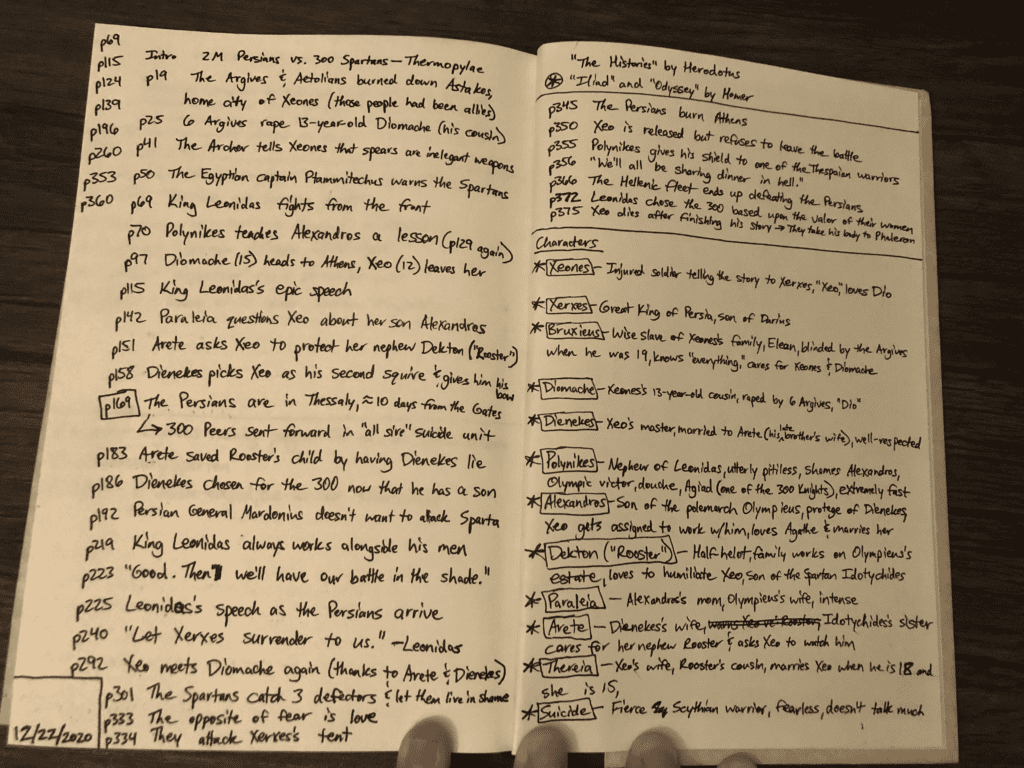 p69
p115
p124
p139
p196
p260
p353
p360
Intro 2M Persians vs. 300 Spartans — Thermopylae
p19 The Argives & Aetolians burned down Astakos,
home city of Xeones (those people had been allies)
p25 6 Argives rape 13-year-old Diomache (his cousin)
p41 The Archer tells Xeones that spears are inelegant weapons
p50 The Egyptian captain Ptammitechus warns the Spartans
p69 King Leonidas fights from the front
p70 Polynikes teaches Alexandros a lesson (p129 again)
p97 Diomache (15) heads to Athens, Xeo (12) leaves her
p115 King Leonidas's epic speech
p142 Paraleia questions Xeo about her son Alexandros
p151 Arete asks Xeo to protect her nephew Dekton ("Rooster")
p158 Dienekes picks Xeo as his second squire & gives him his bow
p169 The Persians are in Thessaly, ≈10 days from the Gates
↳ 300 Peers sent forward in "all sire" suicide unit
p183 Arete saved Rooster's child by having Dienekes lie
p186 Dienekes chosen for the 300 now that he has a son
p192 Persian General Mardonius doesn't want to attack Sparta
p219 King Leonidas always works alongside his men
p223 "Good. Then we'll have our battle in the shade."
p225 Leonidas's speech as the Persians arrive
p240 "Let Xerxes surrender to us." —Leonidas
p292 Xeo meets Diomache again (thanks to Arete & Dienekes)
p301 The Spartans catch 3 defectors & let them live in shame
p333 The opposite of fear is love
p334 They attack Xerxes's tent
12/22/2020
"The Histories" by Herodotus
"Iliad" and "Odyssey" by Homer
p345 The Persians burn Athens
p350 Xeo is released but refuses to leave the battle
p355 Polynikes gives his shield to one of the Thespaian warriors
p356 "We'll all be sharing dinner in hell."
p366 The Hellenic fleet ends up defeating the Persians
p372 Leonidas chose the 300 based upon the valor of their women
p375 Xeo dies after finishing his story → They take his body to Phaleron
Characters
* Xeones — Injured soldier telling the story to Xerxes, "Xeo," loves Dio
* Xerxes — Great King of Persia, son of Darius
* Bruxieus — Wise slave of Xeones's family, Elean, blinded by the Argives
when he was 19, knows "everything," cares for Xeones & Diomache
* Diomache — Xeones's 13-year-old cousin, raped by 6 Argives, "Dio"
* Dienekes — Xeo's master, married to Arete (his late brother's wife), well-respected
* Polynikes — Nephew of Leonidas, utterly pitiless, shames Alexandros,
Olympic victor, douche, Agiad (one of the 300 Knights), extremely fast
* Alexandros — Son of the polemarch Olympieus, protege of Dienekes,
Xeo gets assigned to work w/him, loves Agathe & marries her
* Dekton ("Rooster") — Half-helot, family works on Olympieus's
estate, loves to humiliate Xeo, son of the Spartan Idotychides
* Paraleia — Alexandros's mom, Olympieus's wife, intense
* Arete — Dienekes's wife, warns Xeo re: Rooster, Idotychides's sister
cares for her nephew Rooster & asks Xeo to watch him
* Thereia — Xeo's wife, Rooster's cousin, marries Xeo when he is 18 and
she is 15,
* Suicide — Fierce Scythian warrior, fearless, doesn't talk much